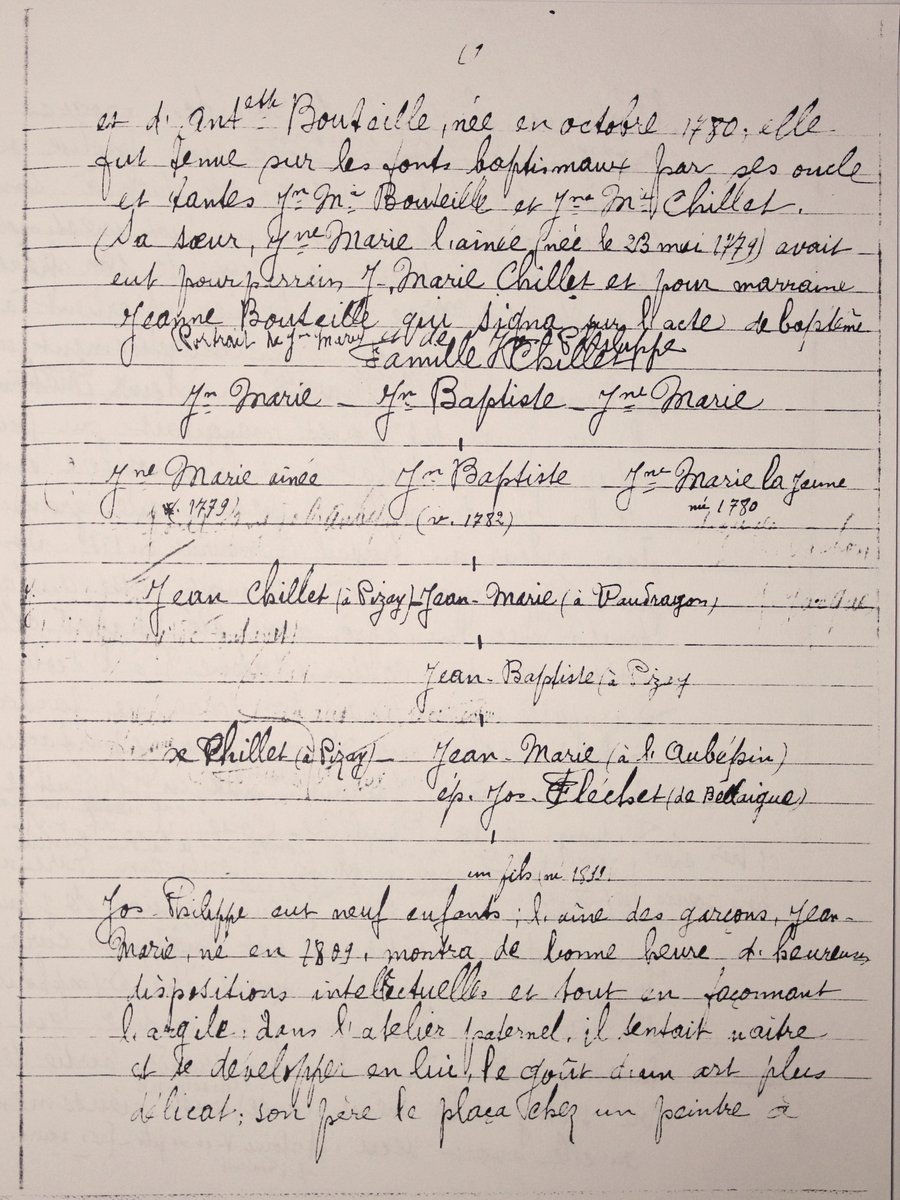 et d'Ant.eth Bouteille, née en octobre 1780; elle
fut tenue sur les fonts baptismaux par ses oncle
et tantes Jn Mie Bouteille et Jne Mie Chillet.
(Sa sœur, Jne Marie l'ainée (née le 23 mai 1779) avait
eut pour perrein J. Marie Chillet et pour marraine
Jeanne Bouteille qui signa sur l'acte de baptême
(Portrait de Jn Marie et de Jos. Philippe
Famille Chillet
Jn Marie – Jn Baptiste – Jne Marie
Jne Marie ainée Jn Baptiste Jne Marie la Jeune
n. 1779) (v. 1782) née 1780
Jean Chillet (à Pizay) – Jean-Marie (à Vaudragon)
Jean-Baptiste (à Pizey
x Chillet (à Pizay) – Jean-Marie (à l'Aubépin)
ép. Jos. Fléchet (de Bellaigue)
un fils, né
Jos-Philippe eut neuf enfants; l'aîné des garçons, Jean-
Marie, né en 1809, montra de bonne heure d'heureuses
dispositions intellectuelles et tout en façonnant
l'argile dans l'atelier paternel, il sentait naitre
et se développer en lui, le goût d'un art plus
délicat; son père le plaça chez un peintre à